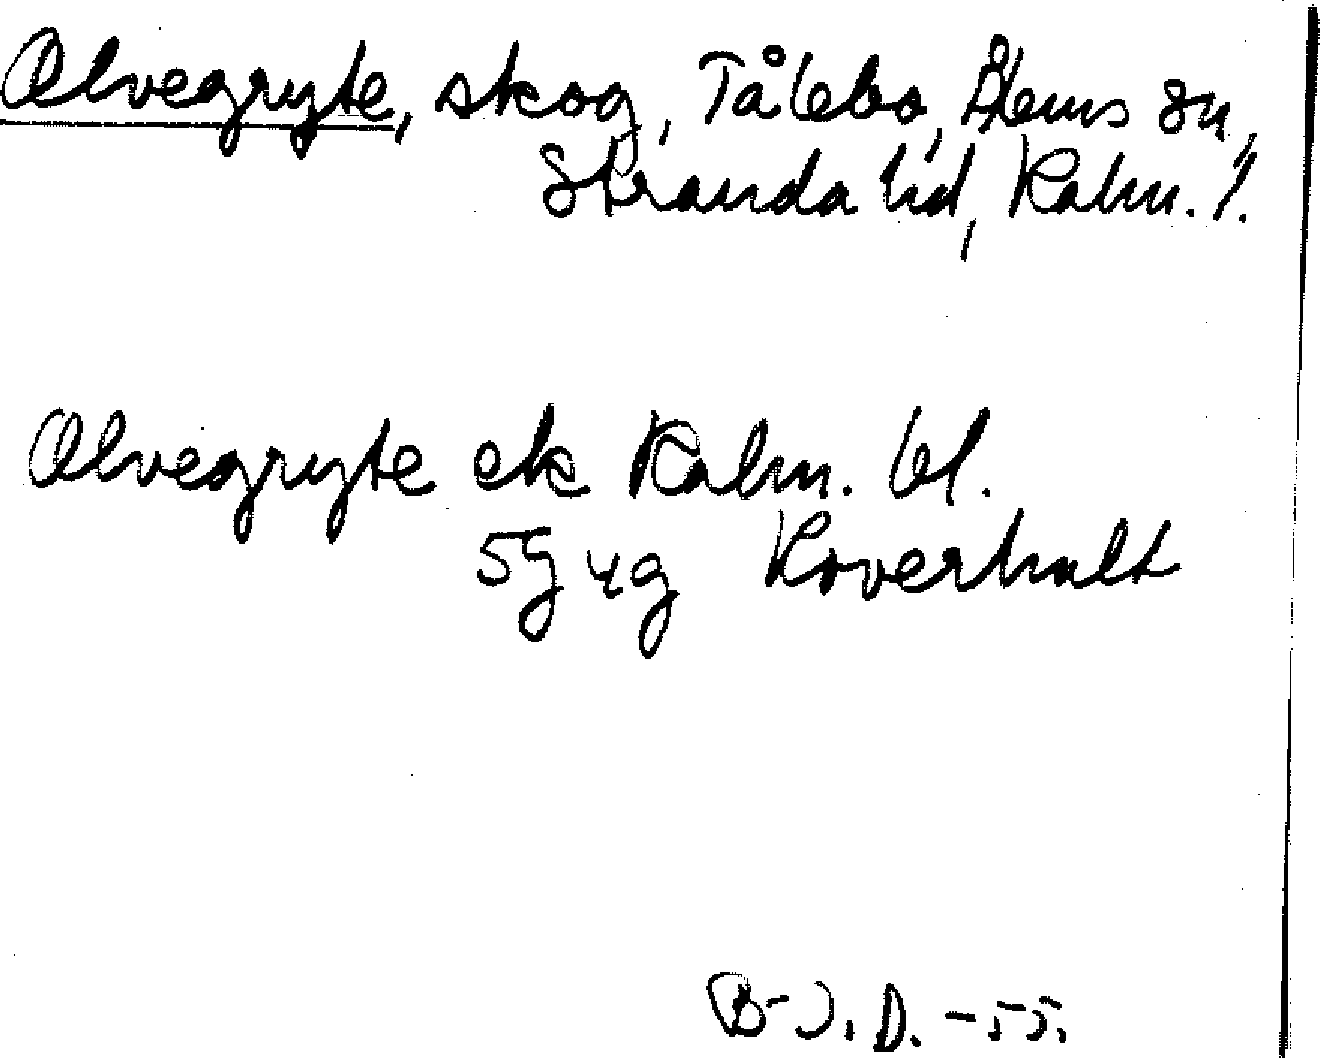 Alvegryte, skog, Tålebo, Ålems sn,
Stranda hd, Kalm. l.
Alvegryte ek Kalm. bl.
5G 4g Koverhult
B-J. D. -55.